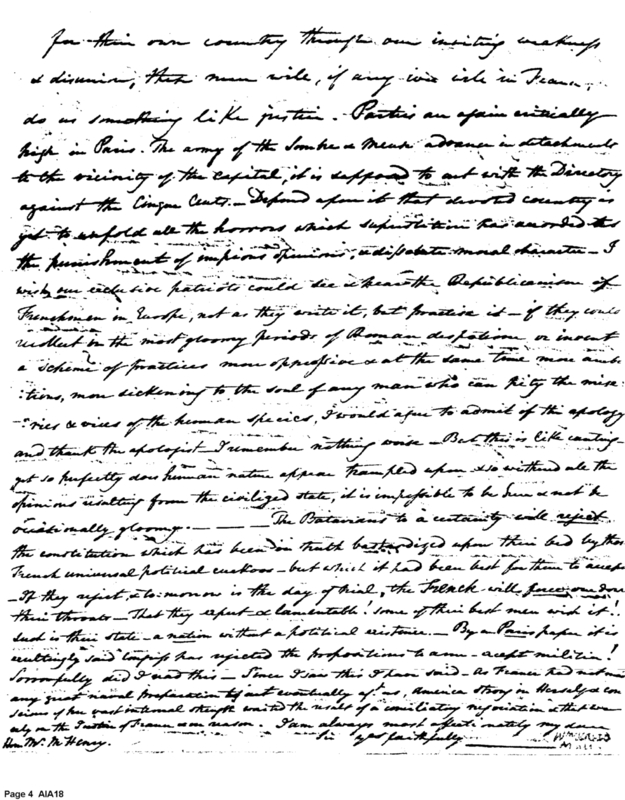 for their own country through our inviting weakness
& disunion, these men will, if any in France,
do us something like justice. Parties are again critically
high in Paris. The army of the Sombre & Meuse advance in detachments
to the vicinity of the Capital, it is supposed to act with the Directory
against the Cinque Cents. – Depend upon it that devoted country is
yet to unfold all the horrors which superstition has awarded to
the punishment of impious opinions, & dissolute moral character – I
wish our exclusive patriots could see & hear the Republicanism of
Frenchmen in Europe, not as they write it, but practise it – if they could
recollect in the most gloomy periods of Roman despotism or invent
a scheme of practices more oppressive & at the same time more
more sickening to the soul of any man who can pity the mise
:ries & vices of the human species, I would agree to admit of the apology
and thank the apologist – I remember nothing worse – But this is like canting –
yet so perfectly does human nature appear trampled upon & so withered all the
opinions resulting from the civilized state, it is impossible to be here & not be
occasionally gloomy. – The Batavians to a certainty will reject
the constitution which has been in truth bastardized upon their bed by these
French universal political cuckoos – but which it had been best for them to accept
– If they reject, & to-morrow is the day of trial, the French will force one down
their throats – That they expect & lamentable! some of their best men wish it!
such is their state – a nation without a political existence. – By a Paris paper it is
exultingly said Congress has rejected the propositions to arm – except militia!
Sorrowfully did I read this – Since I saw this I have said – as France had not made
any great naval preparation eventually of us, America strong in Herself & con
scious of her vast internal strength waited the result of a conciliatory negociation &
rely on the Justice of France & on reason. I am always most affectionately my dear
Sir yrs faithfully
Hon Mr. McHenry.
Page 4 AIA18